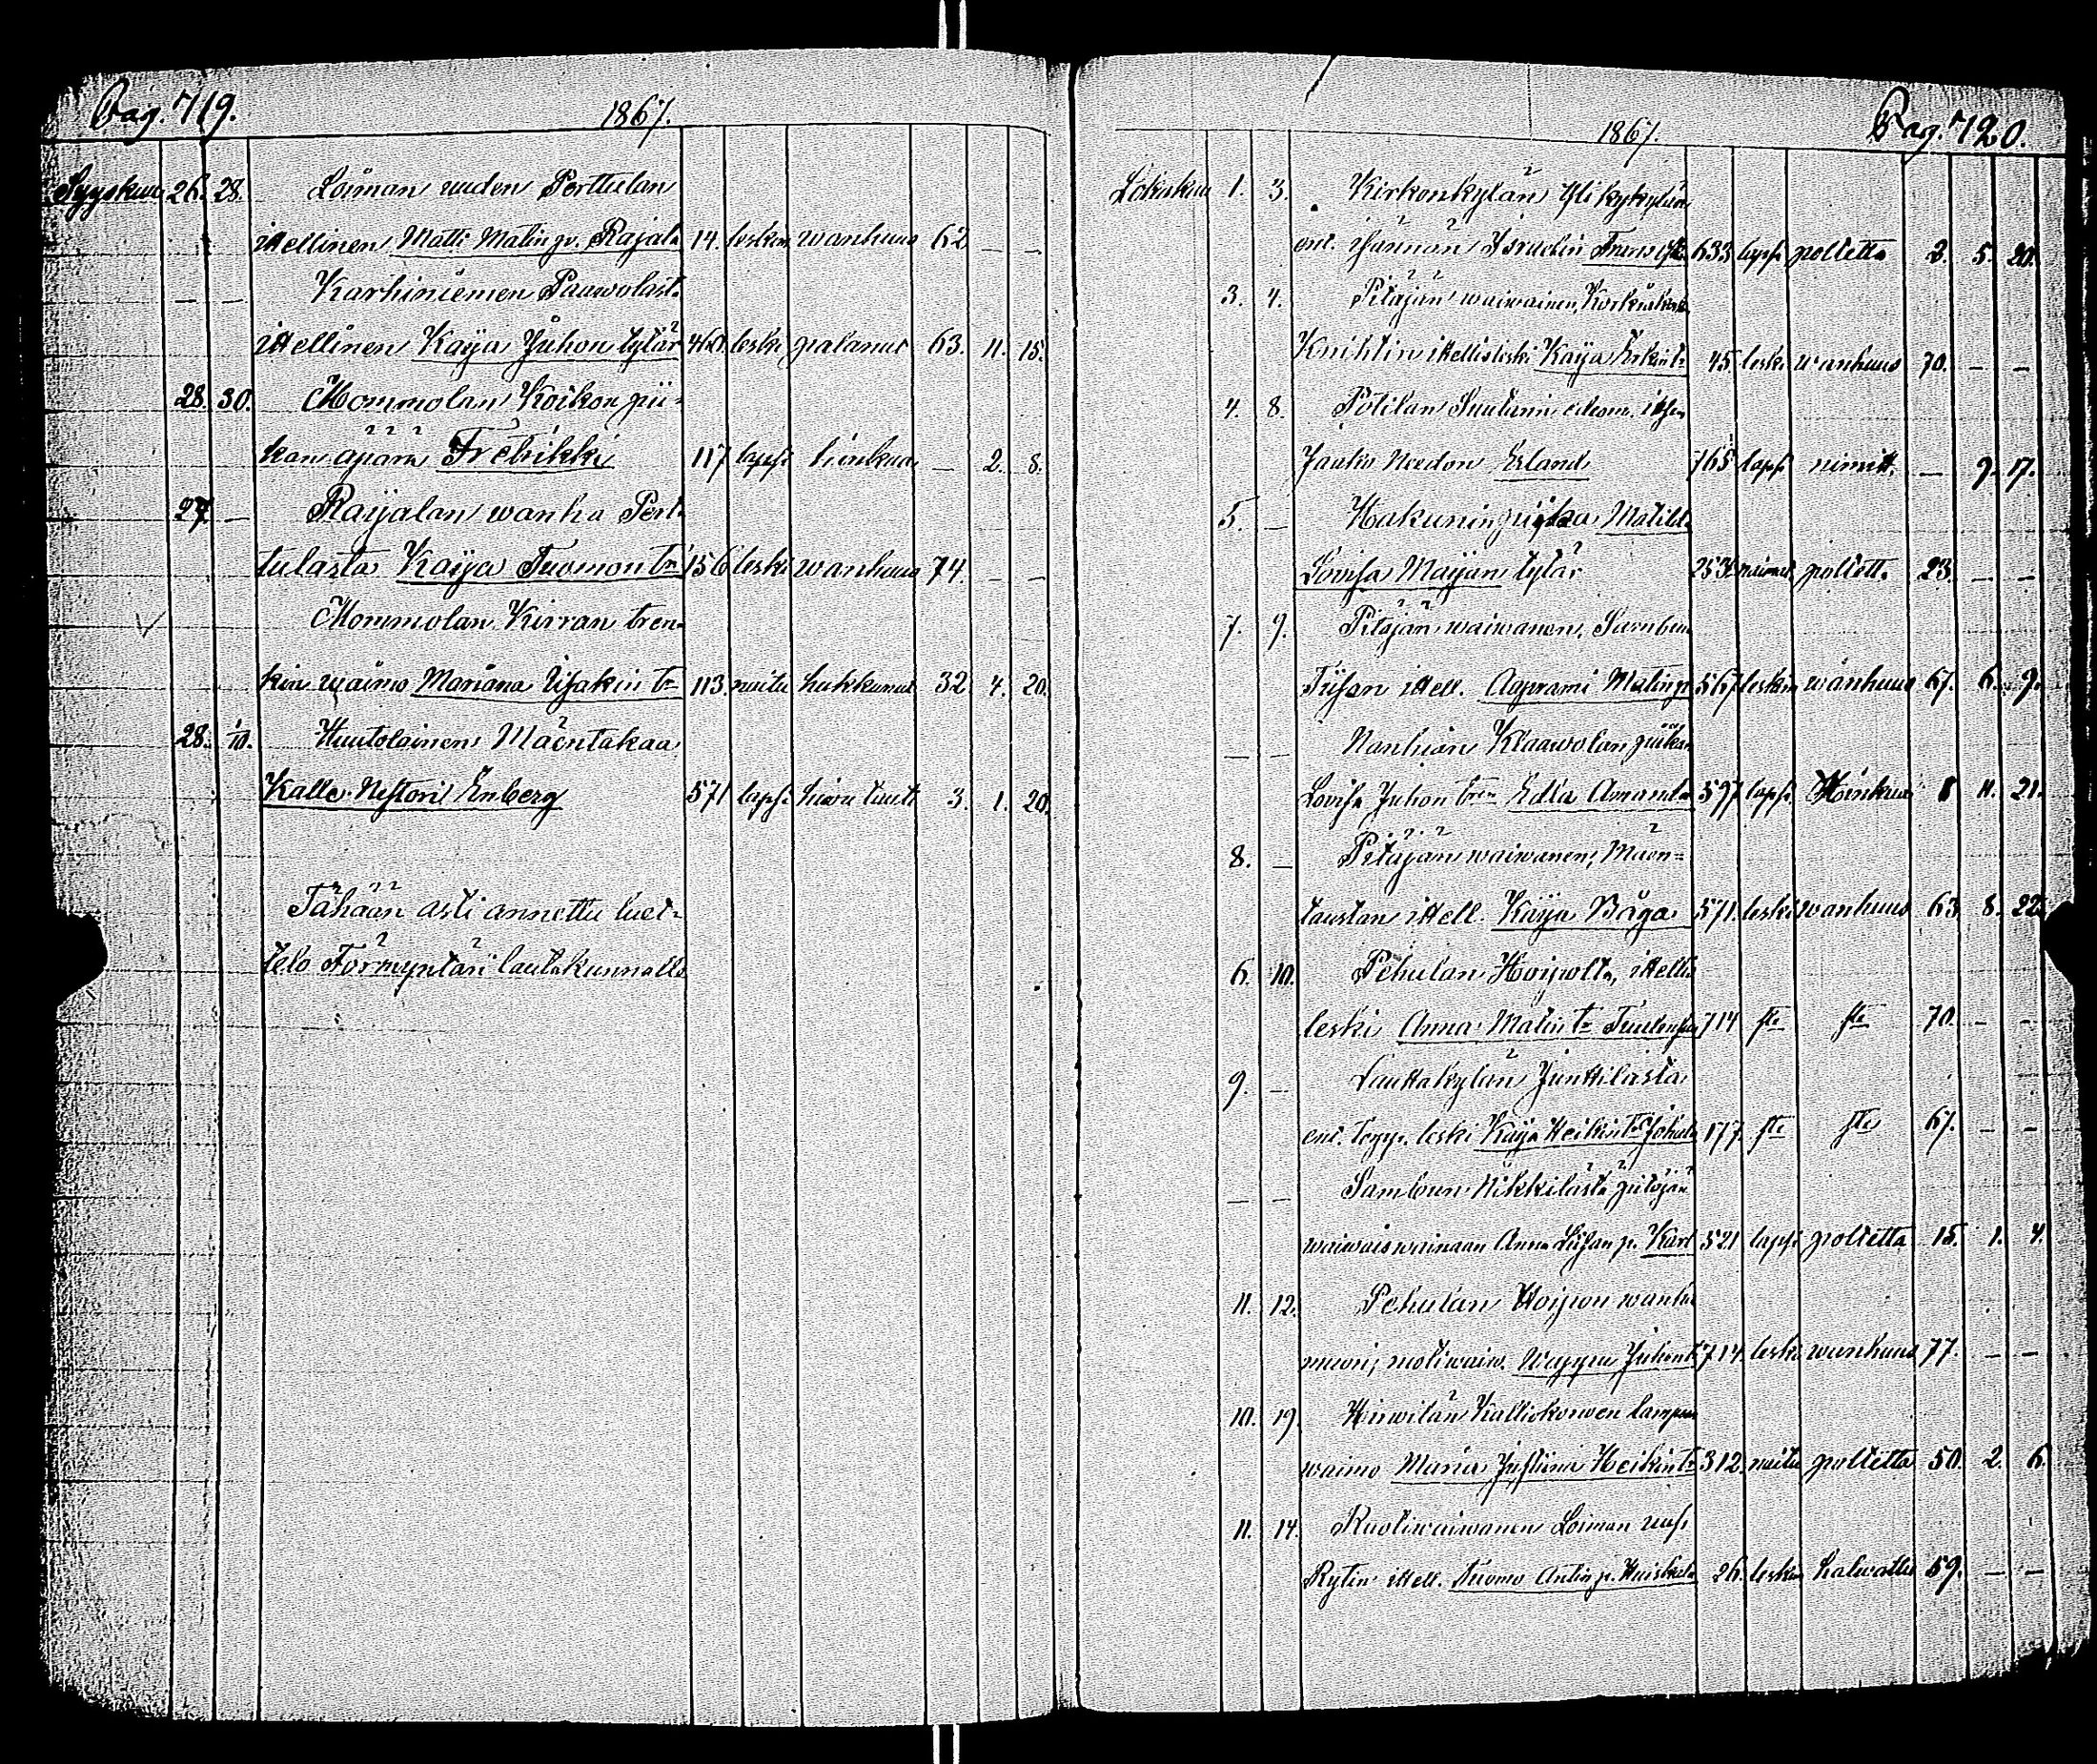 Pag. 719.
1867.
Syyskuu 26. 28. Loiman uuden Perttulan
itellinen Matti Matin p. Rajala 14. leskim wanhuus 62 — —
— — Karhiniemen Pauwolast.
itellinen Kaija Juhon tytär 461. leski palanut 63. 11. 15.
28. 30. Mommolan Koikon pii-
kan äpärä Fretrikki 117 lapsi hinkua — 2. 8.
27. — Raijalan wanha Pert-
tulasta Kaija Tuomon tr 156 leski wanhuus 74. — —
Mommolan Kirran tren-
kin waimo Mariana Iisakin tr 113. naitu hukkunut 32 4. 20.
28. 1/10. Huutolainen Mäentakaa
Kalle Nestori Enberg 571 lapsi 3. 1. 20.
Tähään asti annettu luet-
telo Förmyntäri lautakunnalle
1867.
Pag. 720.
Lokakuu 1. 3. Kirkonkylän
ent. isännän Israelin 633 lapsi poltetta 2. 5. 20.
3. 4. Pitäjän waiwainen,
Knihtin itellis leski Kaija Erkin tr 45. leski wanhuus 70. — —
4. 8. Potilan Suutarin
Jaako Needon Erland 765 lapsi nimitt. — 9. 17.
5. — Hakunin piika Matild.
Lovisa Maijan tytär 253 poltett. 23. — —
7. 9. Pitäjän waiwanen,
itell. Aaprami Matin p. 567 leskim wanhuus 67. 6. 9.
— — Nanhian Klaawolan piikan
Lovisa Juhon tren Edla Amanda 597 lapsi Hinkua 1 11. 21.
8. — Pitäjän waiwanen, Mäen=
taustan itell. Kaija Båga 571. leski wanhuus 63 8. 22.
6. 10. Pehulan Hoipolta, itellis
leski Anna Matin tr 714 ste ste 70. — —
9. — Lauttakylän Junttilasta
ent. torp. leski Kaija Heikin tr 177. ste ste 67. — —
— — Sambun Nikkilästä pitäjän
waiwaiswaimaan Anna Liisan p. Karl 521 lapsi poltetta 15. 1. 4.
11. 12. Pehulan Hoipon wanha
muori, Juhon tr 714. leski wanhuus 77. — —
10. 19. Hirwilän Kalliokorwen
waimo Maria Justiina Heikin tr 312. naitu poltetta 50. 2. 6.
11. 14. Ruotiwaiwanen Loiman
Rytin itell. Tuomo Antin p. 26. leskim halwattu 59. — —